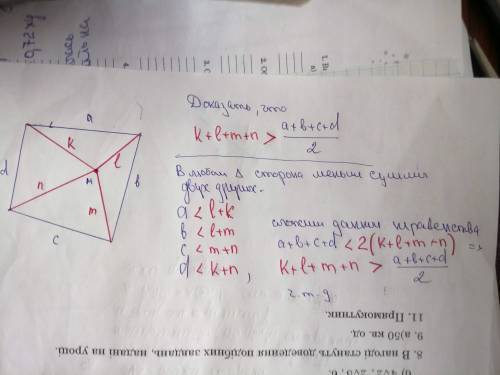 Доказать, что
k+l+m+n > a+b+c+d / 2
В любом Δ сторона меньше суммы
двух других.
a < l+k
b < l+m
c < m+n
d < k+n,
сложим данные неравенства
a+b+c+d < 2(k+l+m+n) =>
k+l+m+n > a+b+c+d / 2
ч.т.д.
a
b
c
d
k
l
m
n
м
11. Прямокутник.
9. а)50 кв. од.
8. В нагоді стануть доведення подібних завдань, надані на уроці.